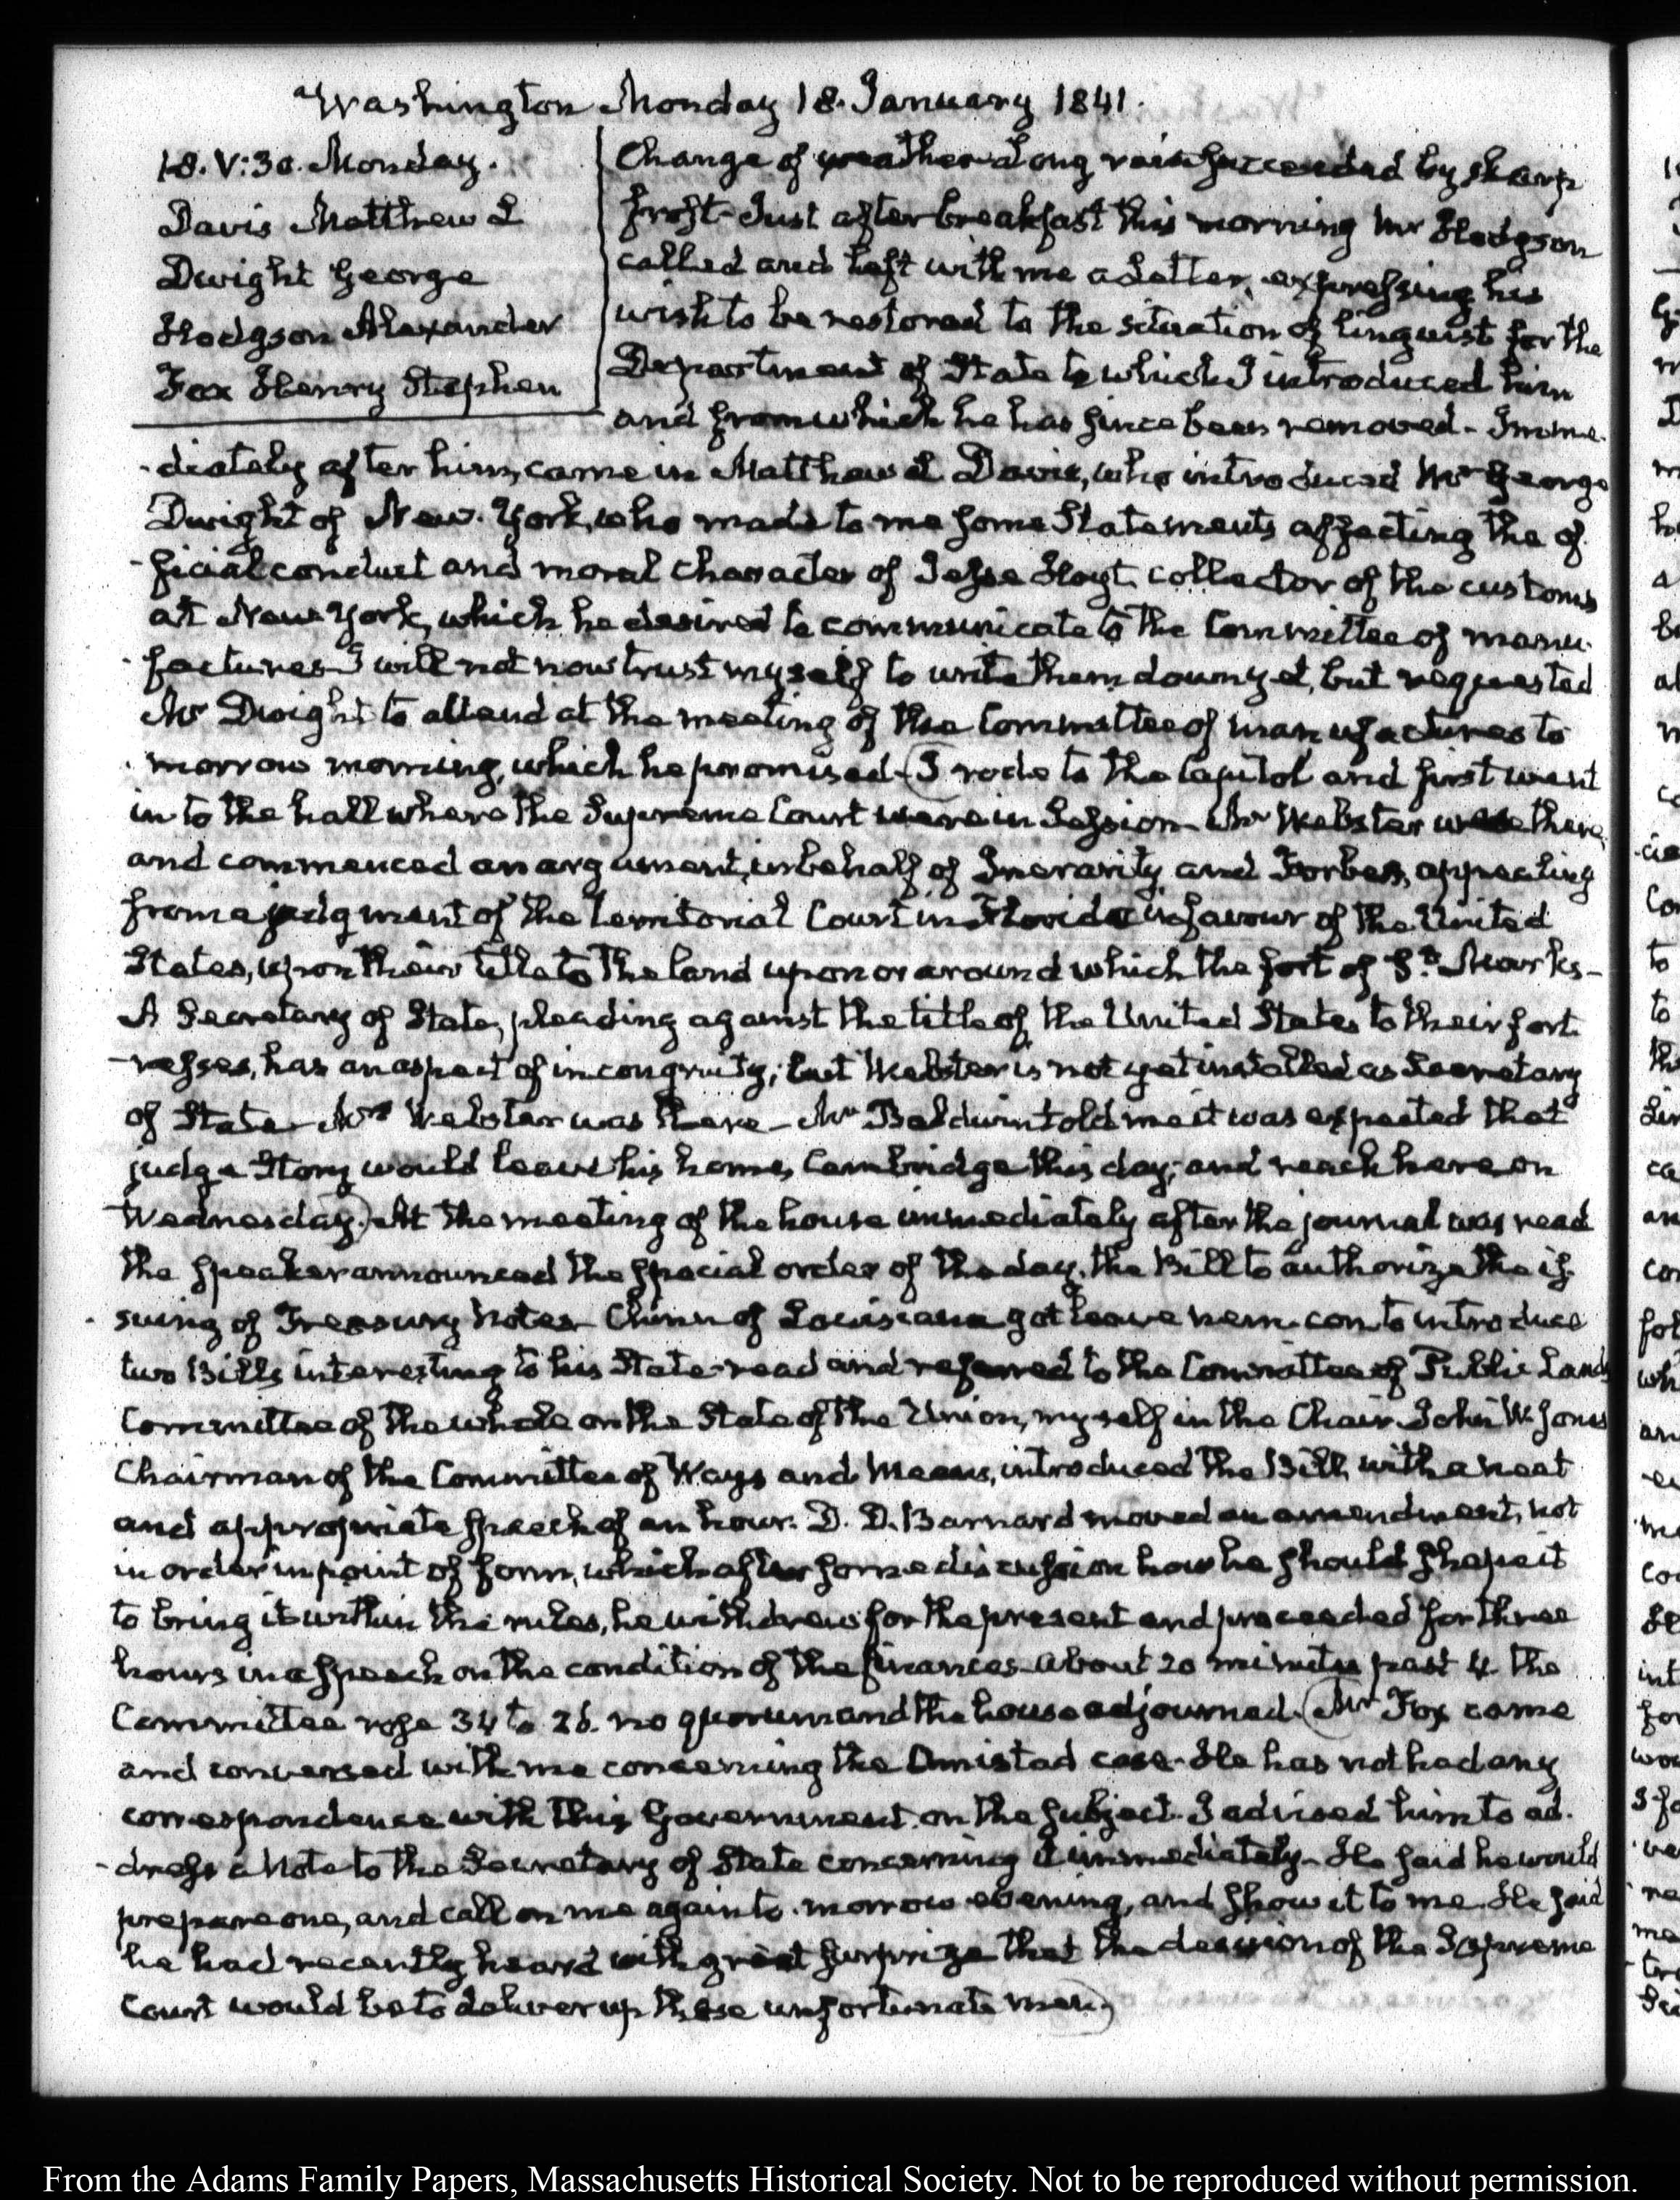 Washington Monday 18. January 1841.
18. V:30. Monday.
Davis Matthew L
Dwight George
Hodgson Alexander
Fox Henry Stephen
Change of weather. Long rain succeeded by sharp
frost. Just after breakfast this morning Mr Hodgson
called and left with me a Letter, expressing his
wish to be restored to the situation of linguist for the
Department of State to which I introduced him
and from which he has since been removed. Imme-
-diately after him, came in Matthew L Davis, who introduced Mr George
Dwight of New-York, who made to me some Statements affecting the of-
-ficial conduct and moral character of Jesse Hoyt collector of the customs
at New York, which he desired to communicate to the Committee of manu-
-factures. I will not now trust myself to write them down yet, but requested
Mr Dwight to attend at the meeting of the Committee of manufactures to
-morrow morning, which he promised. (I rode to the Capitol and first went
in to the hall where the Supreme Court were in Session. Mr Webster was there
and commenced an argument, in behalf of Inerarity and Forbes, appealing
from a judgment of the territorial Court in Florida in favour of the United
States, upon their title to the land upon or around which the fort of St. Marks-
A Secretary of State, pleading against the title of the United States to their fort-
-resses, has an aspect of incongruity; but Webster is not yet installed as Secretary
of State. Mrs Webster was there. Mr Baldwin told me it was expected that
judge Story would leave his home, Cambridge this day; and reach here on
Wednesday.) At the meeting of the house immediately after the journal was read
the Speaker announced the special order of the day, the Bill to authorize the is-
-suing of Treasury Notes. Chinn of Louisiana got leave nem. con. to introduce
two Bills interesting to his State read and referred to the Committee of Public Lands
Committee of the whole on the State of the Union, myself in the Chair. John W. Jones
Chairman of the Committee of Ways and Means, introduced the Bill, with a neat
and appropriate speech of an hour. D. D. Barnard moved an amendment, not
in order in point of form, which after some discussion how he should shape it
to bring it within the rules, he withdrew for the present and proceeded for three
hours in a speech on the condition of the finances. About 20 minutes past 4. the
Committee rose 34 to 26. no quorum and the house adjourned. (Mr Fox came
and conversed with me concerning the Amistad case. He has not had any
correspondence with this Government on the subject. I advised him to ad-
-dress a Note to the Secretary of State concerning it immediately. He said he would
prepare one, and call on me again to-morrow evening, and show it to me. He said
he had recently heard with great surprize that the decision of the Supreme
Court would be to deliver up these unfortunate men.)
From the Adams Family Papers, Massachusetts Historical Society. Not to be reproduced without permission.